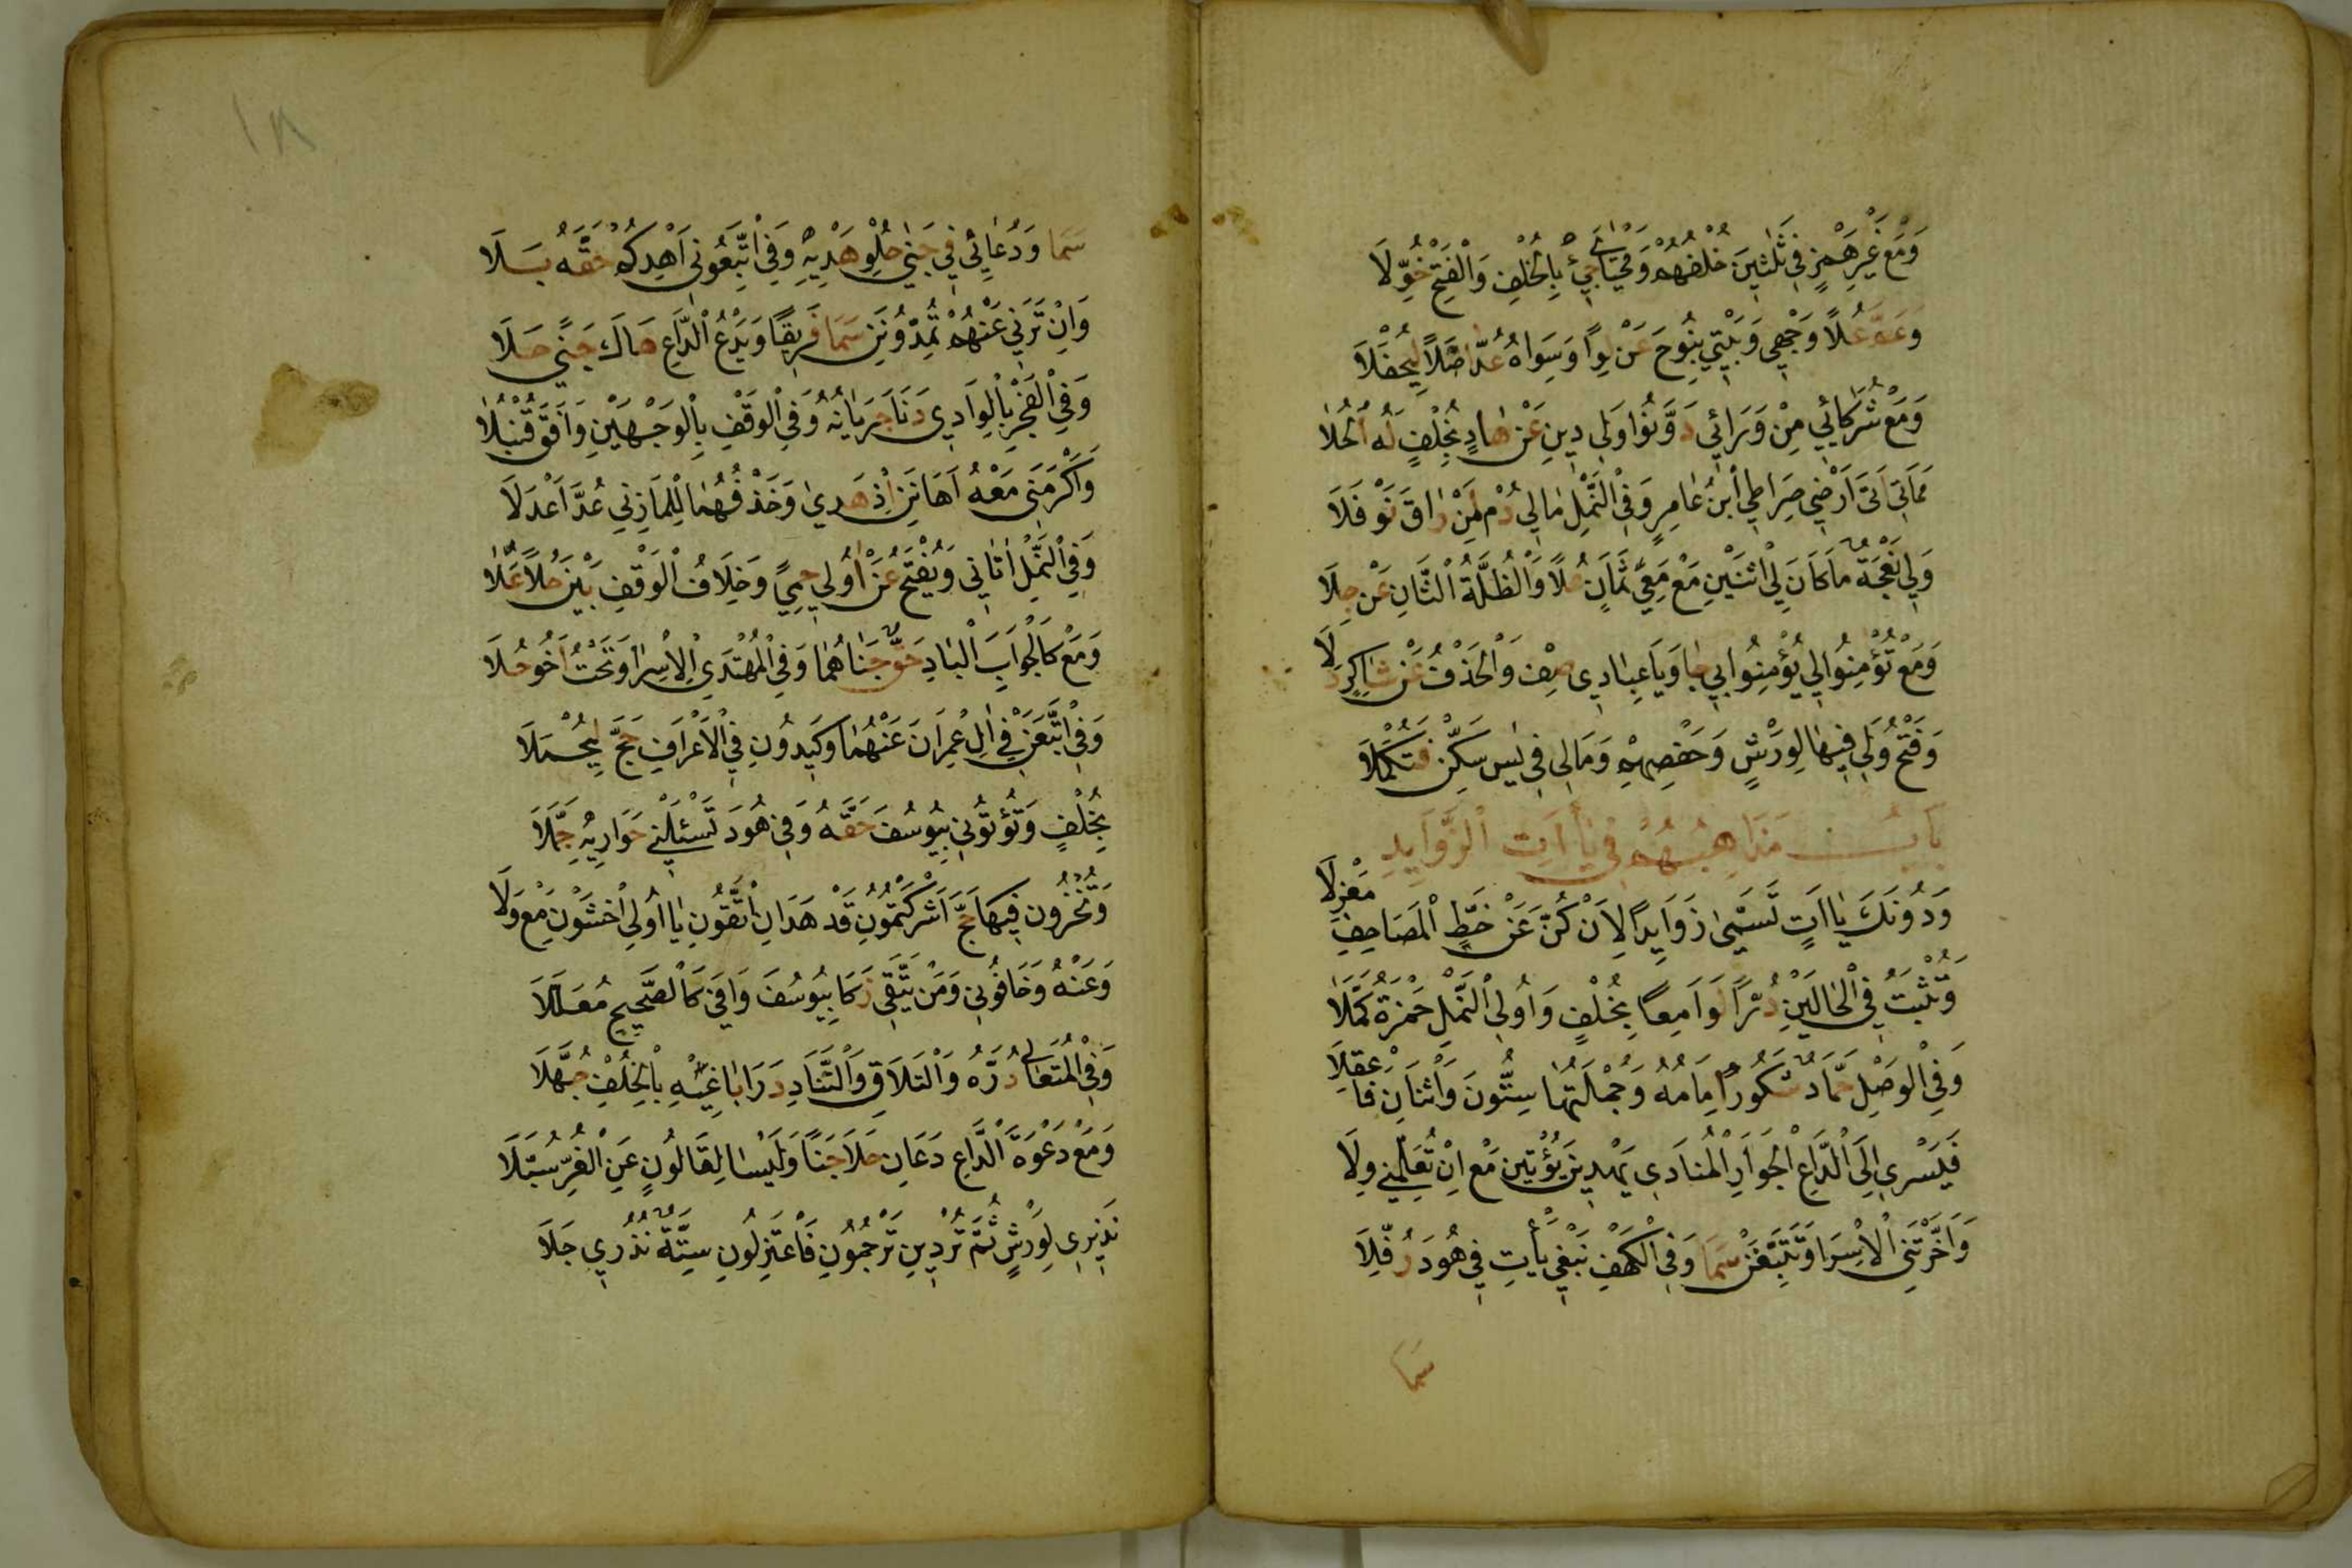 وَمَعْ غَيْرِ هَمْزٍ فِي ثَلٰثِينَ خُلْفُهُمْ وَمَحْيَايَ جِيْ بِالْخُلْفِ وَالْفَتْحِ خُوِّلَا
وَعَمَّ عُلًا وَجْهِي وَبَيْتِي بِنُوحَ عَنْ لِوًا وَسِوَاهُ عُدَّ اَصْلًا لِيُحْفَلَا
وَمَعْ شُرَكَائِي مِنْ وَرَائِي دَوَّنُوا وَلِي دِينِ عَنْ هَادٍ بِخُلْفٍ لَهُ الْحُلَا
مَمَاتِي اَتَى اَرْضِي صِرَاطِي ابْنُ عَامِرٍ وَفِي النَّمْلِ مَالِي دُمْ لِمَنْ رَاقَ نَوْفَلَا
وَلِي نَعْجَةٌ مَا كَانَ لِي اثْنَيْنِ مَعْ مَعِي ثَمَانٍ عُلًا وَالظُّلَّةُ الثَّانِ عَنْ جِلَا
وَمَعْ تُؤْمِنُوا لِي يُؤْمِنُوا بِي جَا وَيَا عِبَادِي صِفْ وَالْحَذْفُ عَنْ شَاكِرٍ دَلَا
وَفَتْحُ وَلِي فِيهَا لِوَرْشٍ وَحَفْصِهِمْ وَمَالِي فِي يٰس سَكِّنْ فَتَكْمُلَا
بَابُ مَذَاهِبُهُمْ فِي يَاآتِ الزَّوَايِدِ
وَدُونَكَ يَاآتٍ تُسَمَّى زَوَايِدًا لِاَنْ كُنَّ عَنْ خَطِّ الْمَصَاحِفِ مَعْزِلَا
وَتُثْبَتُ فِي الْحَالَيْنِ دُرًّا لَوَامِعًا بِخُلْفٍ وَاُولَى النَّمْلِ حَمْزَةُ كَمَّلَا
وَفِي الْوَصْلِ حَمَّادٌ شَكُورٌ اِمَامُهُ وَجُمْلَتُهَا سِتُّونَ وَاثْنَانِ فَاعْقِلَا
فَيَسْرِي اِلَى الدَّاعِ الْجَوَارِ الْمُنَادِي يَهْدِيَنْ يُؤْتِيَنْ مَعْ اِنْ تُعَلِّمَنِي وِلَا
وَاَخَّرْتَنِي الْاِسْرَا وَتَتَّبِعَنْ سَمَا وَفِي الْكَهْفِ نَبْغِي يَأْتِ فِي هُودَ رُفِّلَا
سَمَا
١٨
سَمَا وَدُعَائِي فِي جَنَى حُلْوِ هَدْيِهِ وَفِي اتَّبِعُونِي اَهْدِكُمْ حَقُّهُ بَلَا
وَاِنْ تَرَنِي عَنْهُمْ تُمِدُّونَنِ سَمَا فَرِيقًا وَيَدْعُ الدَّاعِ هَاكَ جَنًى حَلَا
وَفِي الْفَجْرِ بِالْوَادِي دَنَا جَرَيَانُهُ وَفِي الْوَقْفِ بِالْوَجْهَيْنِ وَافَقَ قُنْبُلَا
وَاَكْرَمَنِي مَعْهُ اَهَانَنِ اِذْ هَدَى وَحَذْفُهُمَا لِلْمَازِنِي عُدَّ اَعْدَلَا
وَفِي النَّمْلِ اٰتَانِي وَيُفْتَحُ عَنْ اُولِي حِمًى وَخِلَافُ الْوَقْفِ بَيْنَ حُلًا عَلَا
وَمَعْ كَالْجَوَابِ الْبَادِ حَقٌّ جَنَاهُمَا وَفِي الْمُهْتَدِي الْاِسْرَا وَتَحْتُ اَخُو حُلَا
وَفِي اتَّبَعَنْ فِي اٰلِ عِمْرَانَ عَنْهُمَا وَكِيدُونِ فِي الْاَعْرَافِ حَجَّ لِيُحْمَلَا
بِخُلْفٍ وَتُؤْتُونِي بِيُوسُفَ حَقُّهُ وَفِي هُودَ تَسْئَلْنِي حَوَارِيهِ جَمَّلَا
وَتُخْزُونِ فِيهَا حَجَّ اَشْرَكْتُمُونِ قَدْ هَدَانِ اتَّقُونِ يَا اُولِي اخْشَوْنِ مَعْ وَلَا
وَعَنْهُ وَخَافُونِي وَمَنْ يَتَّقِي زَكَا بِيُوسُفَ وَافَى كَالصَّحِيحِ مُعَلَّلَا
وَفِي الْمُتَعَالِي دُرُّهُ وَالتَّلَاقِ وَالتَّنَادِ دَرَا بَاغِيهِ بِالْخُلْفِ جُهَّلَا
وَمَعْ دَعْوَةَ الدَّاعِ دَعَانِ حَلَا جَنًا وَلَيْسَا لِقَالُونٍ عَنِ الْغُرِّ سُبَّلَا
نَذِيرِي لِوَرْشٍ ثُمَّ تُرْدِينِ تَرْجُمُونِ فَاعْتَزِلُونِ سِتَّةٌ نُذُرِي جَلَا